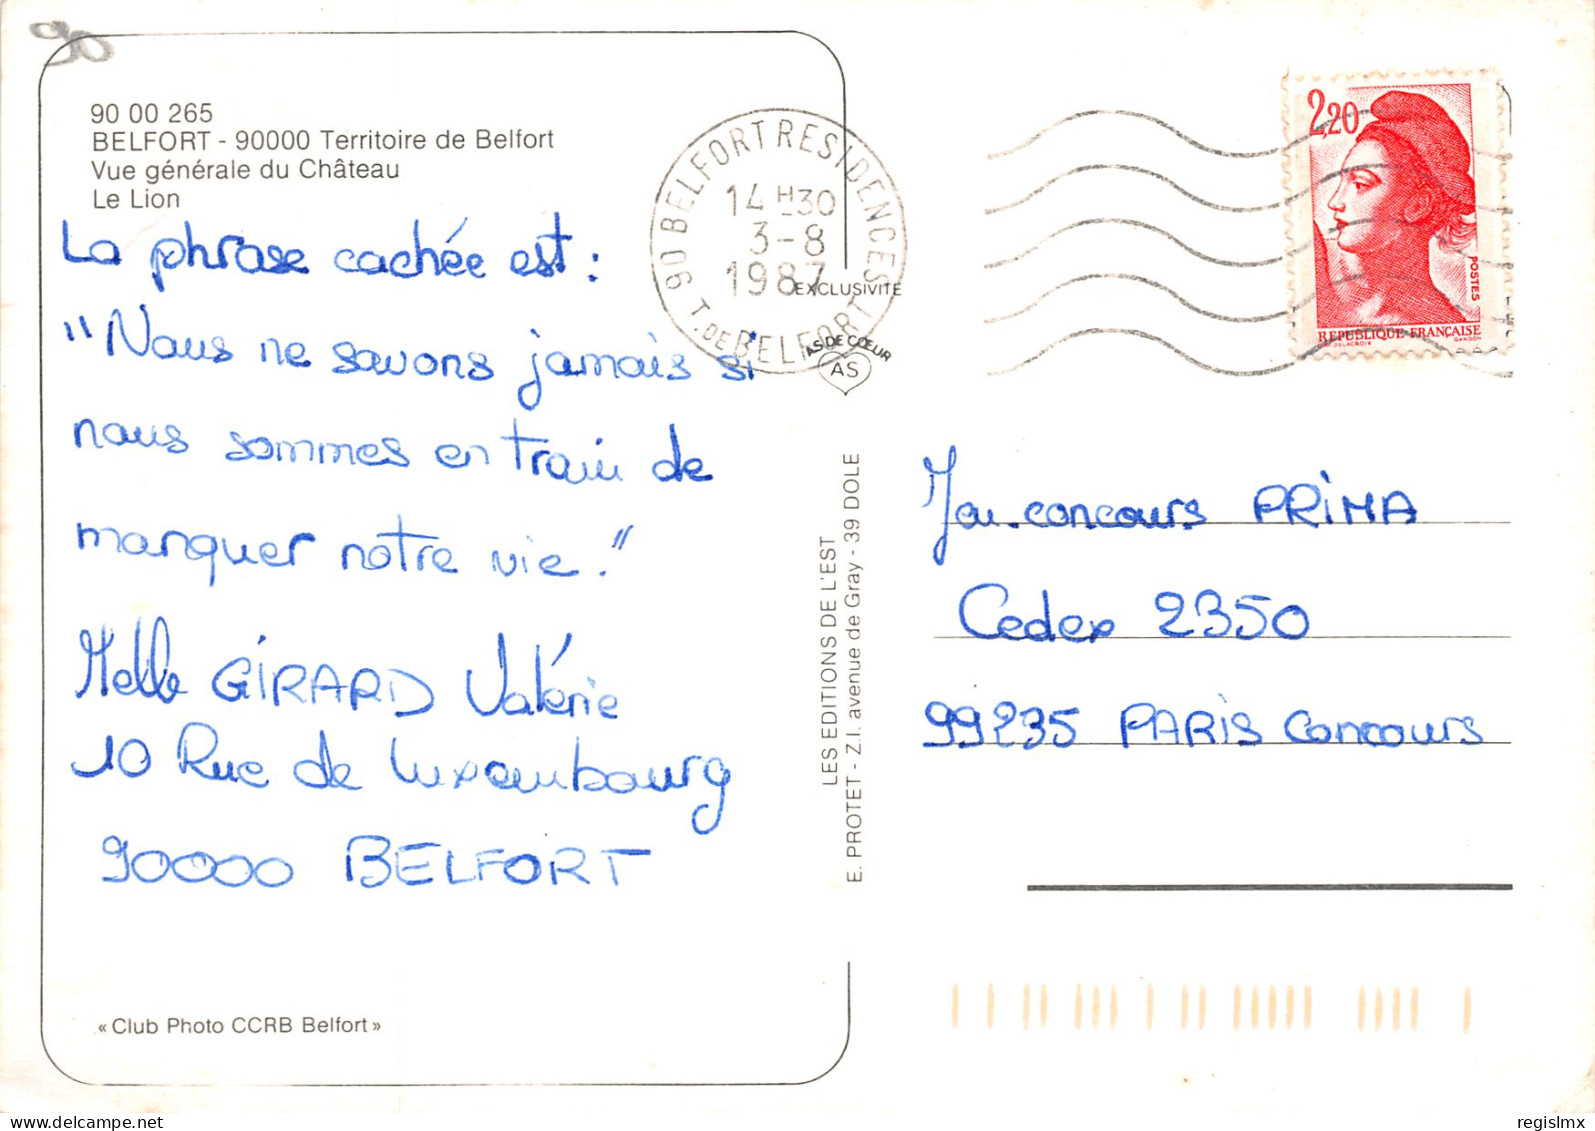 90
90 00 265
BELFORT - 90000 Territoire de Belfort
Vue générale du Château
Le Lion
La phrase cachée est :
"Nous ne savons jamais si
nous sommes en train de
manquer notre vie."
Melle GIRARD Valérie
10 Rue de Luxembourg
90000 BELFORT
« Club Photo CCRB Belfort »
90 BELFORT RESIDENCES
14 H30
3-8
1987
T. DE BELFORT
EXCLUSIVITE
AS DE CŒUR
AS
LES EDITIONS DE L'EST
E. PROTET - Z.I. avenue de Gray - 39 DOLE
2,20
POSTES
REPUBLIQUE FRANÇAISE
DELACROIX GANDON
Jeu-concours PRIMA
Cedex 2350
99235 PARIS Concours
regislmx